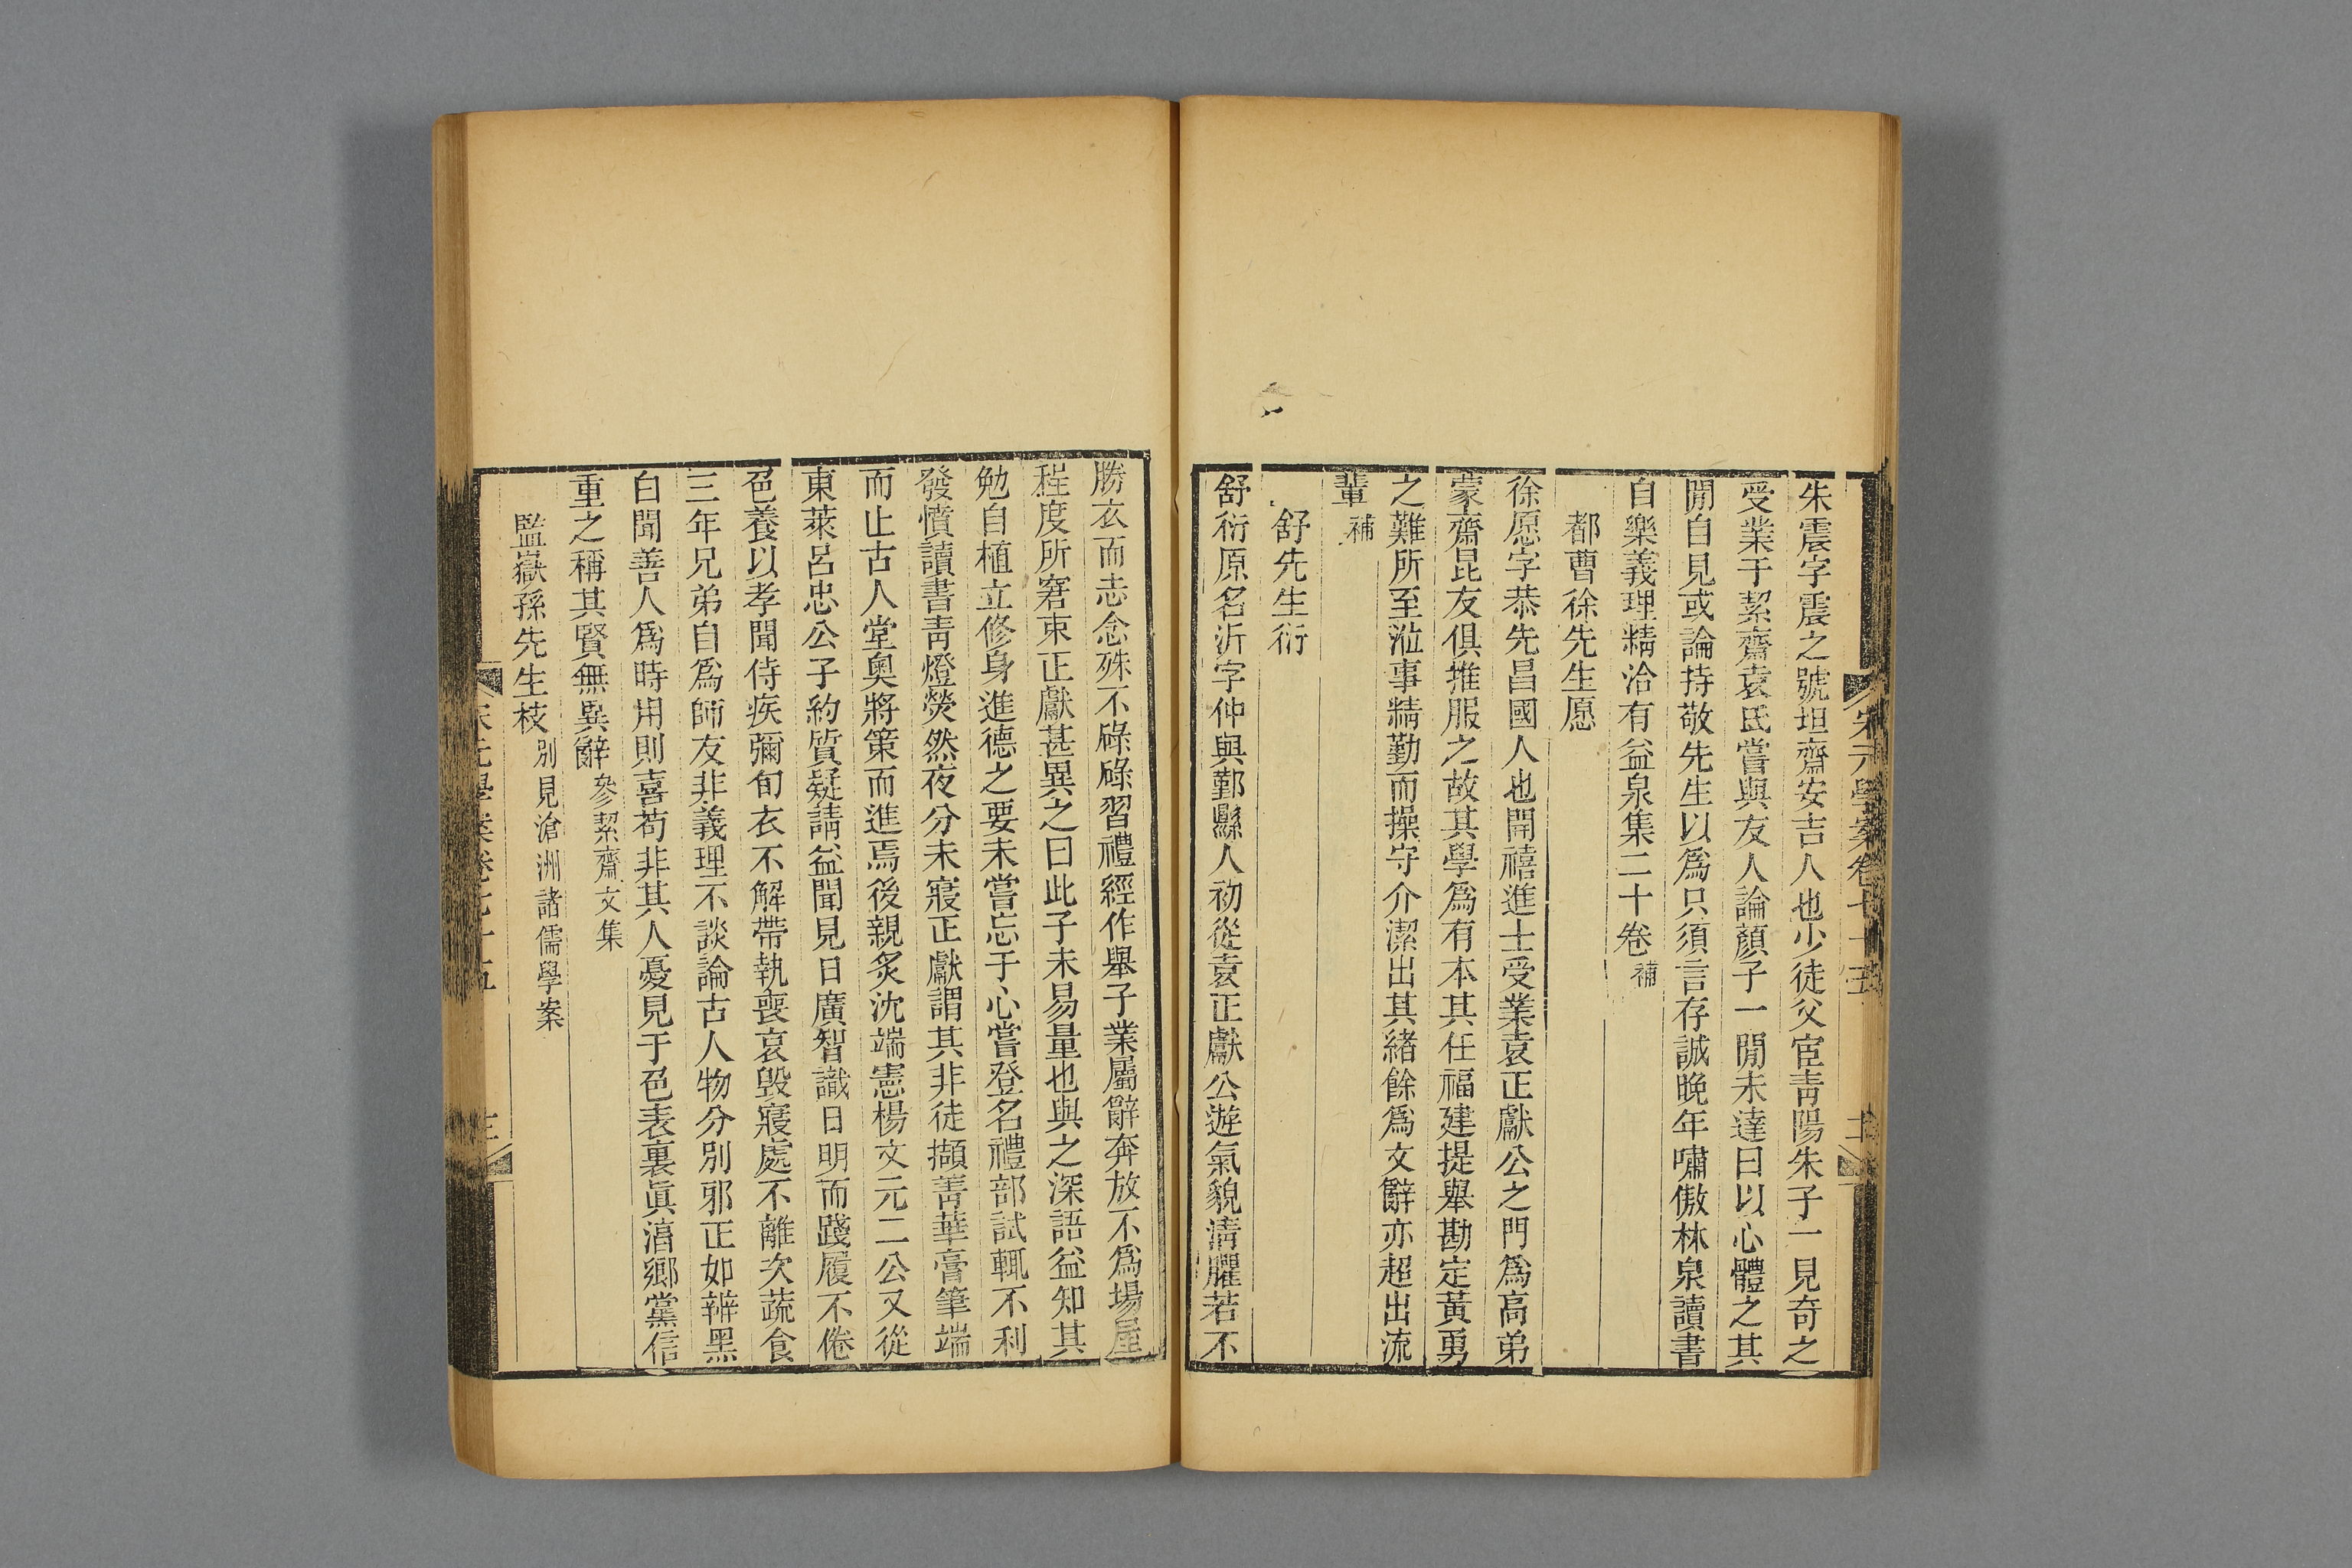 宋元學案卷七十五
朱震字震之號坦齋安吉人也少徒父宦靑陽朱子一見奇之
受業于絜齋袁氏嘗與友人論顏子一閒未達曰以心體之其
閒自見或論持敬先生以爲只須言存誠晚年嘯傲林泉讀書
自樂義理精洽有益泉集二十卷補
都曹徐先生愿
徐愿字恭先昌國人也開禧進士受業袁正獻公之門爲高弟
蒙齋昆友俱推服之故其學爲有本其任福建提舉勘定黃勇
之難所至涖事精勤而操守介潔出其緒餘爲文辭亦超出流
輩補
舒先生衍
舒衍原名沂字仲與鄞縣人初從袁正獻公遊氣貌淸臞若不
勝衣而志念殊不碌碌習禮經作舉子業屬辭奔放不爲場屋
程度所窘束正獻甚異之曰此子未易量也與之深語益知其
勉自植立修身進德之要未嘗忘于心嘗登名禮部試輒不利
發憤讀書靑燈熒然夜分未寢正獻謂其非徒擷菁華膏筆端
而止古人堂奧將策而進焉後親炙沈端憲楊文元二公又從
東萊呂忠公子約質疑請益聞見日廣智識日明而踐履不倦
色養以孝聞侍疾彌旬衣不解帶執喪哀毀寢處不離次蔬食
三年兄弟自爲師友非義理不談論古人物分別邪正如辨黑
白聞善人爲時用則喜苟非其人憂見于色表裏眞淯鄉黨信
重之稱其賢無異辭參絜齋文集
監嶽孫先生枝別見滄洲諸儒學案
宋元學案卷七十五